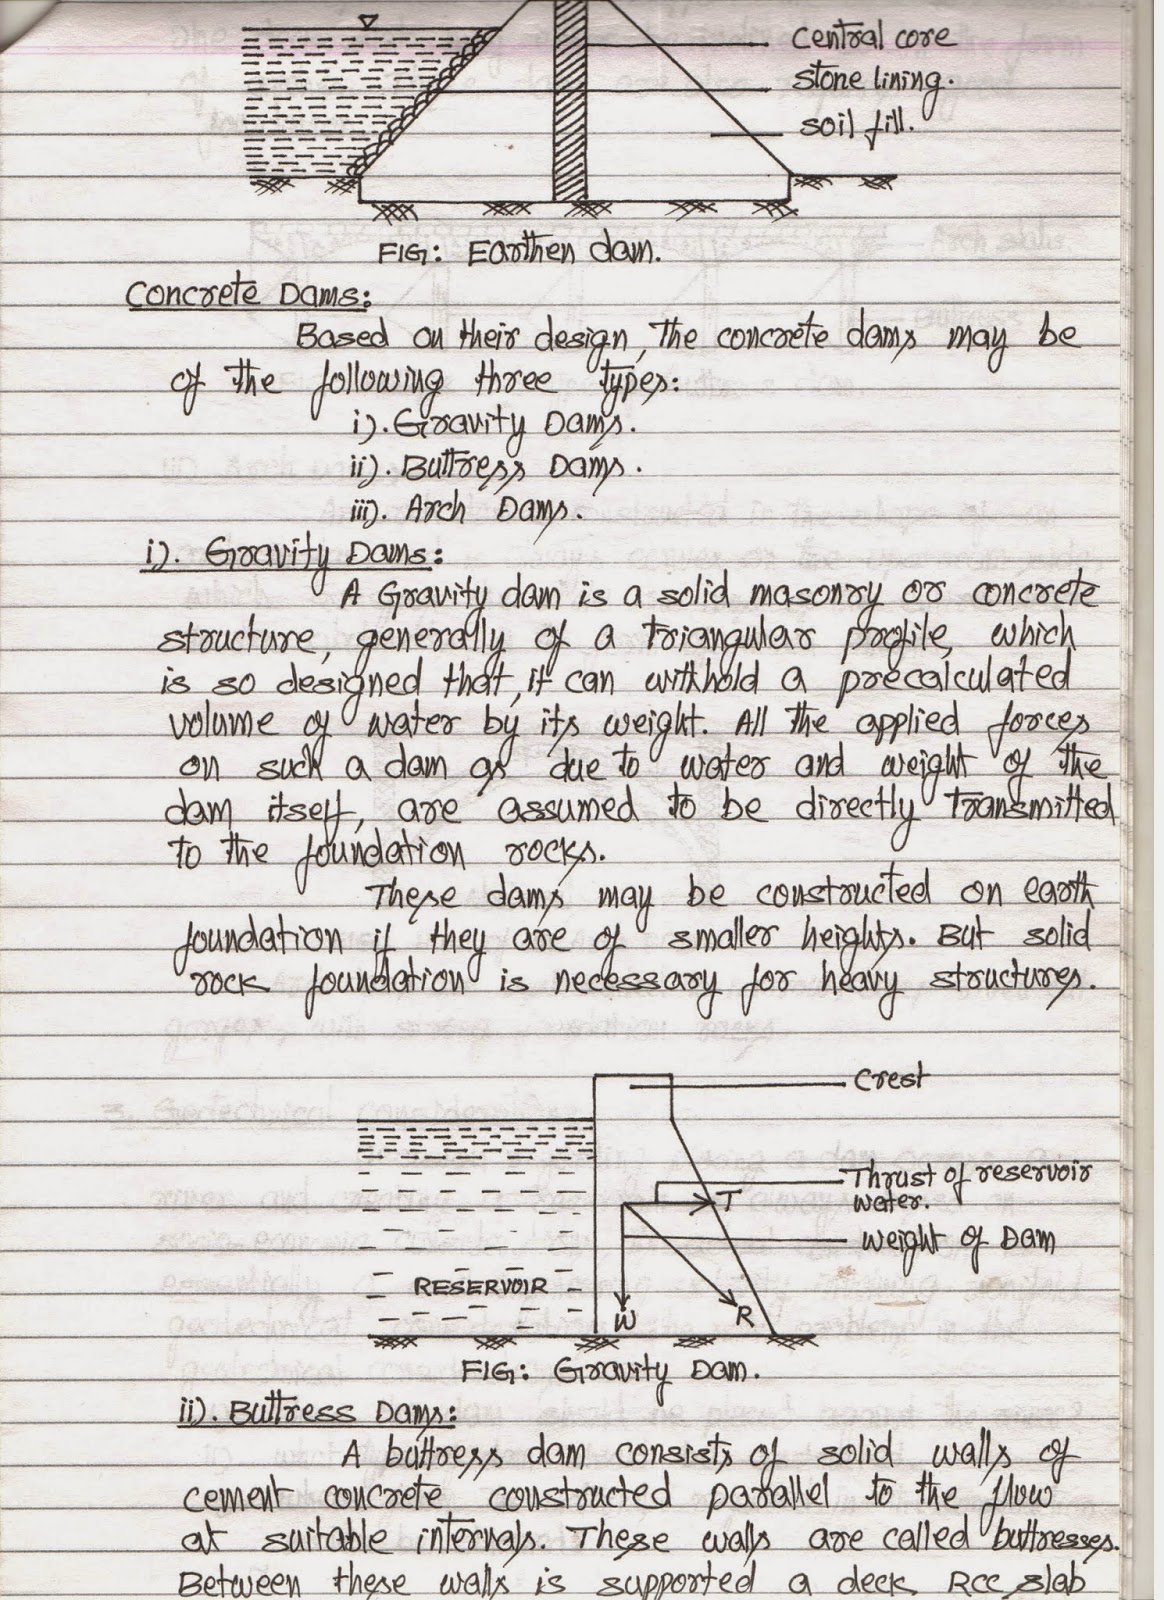 central core
stone lining.
soil fill.
FIG: Earthen dam.
Concrete Dams:
Based on their design, the concrete dams may be
of the following three types:
i). Gravity Dams.
ii). Buttress Dams.
iii). Arch Dams.
i). Gravity Dams:
A Gravity dam is a solid masonry or concrete
structure, generally of a triangular profile, which
is so designed that, it can withhold a precalculated
volume of water by its weight. All the applied forces
on such a dam as due to water and weight of the
dam itself, are assumed to be directly transmitted
to the foundation rocks.
These dams may be constructed on earth
foundation if they are of smaller heights. But solid
rock foundation is necessary for heavy structures.
Crest
Thrust of reservoir
water.
T
weight of Dam
RESERVOIR
W
R
FIG: Gravity Dam.
ii). Buttress Dams:
A buttress dam consists of solid walls of
cement concrete constructed parallel to the flow
at suitable intervals. These walls are called buttresses.
Between these walls is supported a deck RCC slab